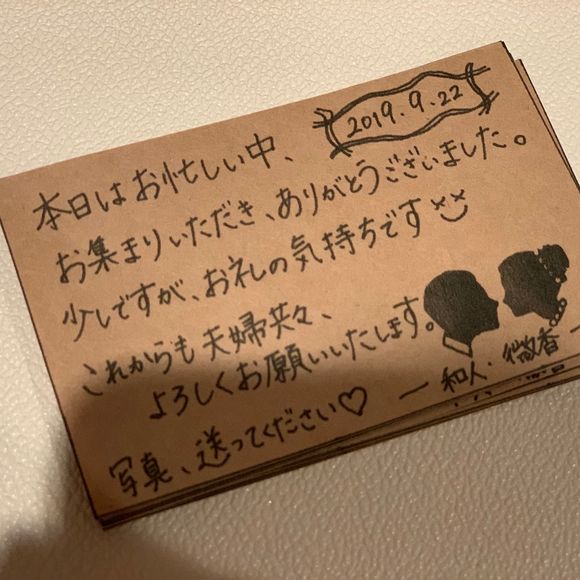 2019.9.22
本日はお忙しい中、
お集まりいただき、ありがとうございました。
少しですが、お礼の気持ちです
これからも夫婦共々、
よろしくお願いいたします。
写真、送ってください♡
ー 和人・微香 ー